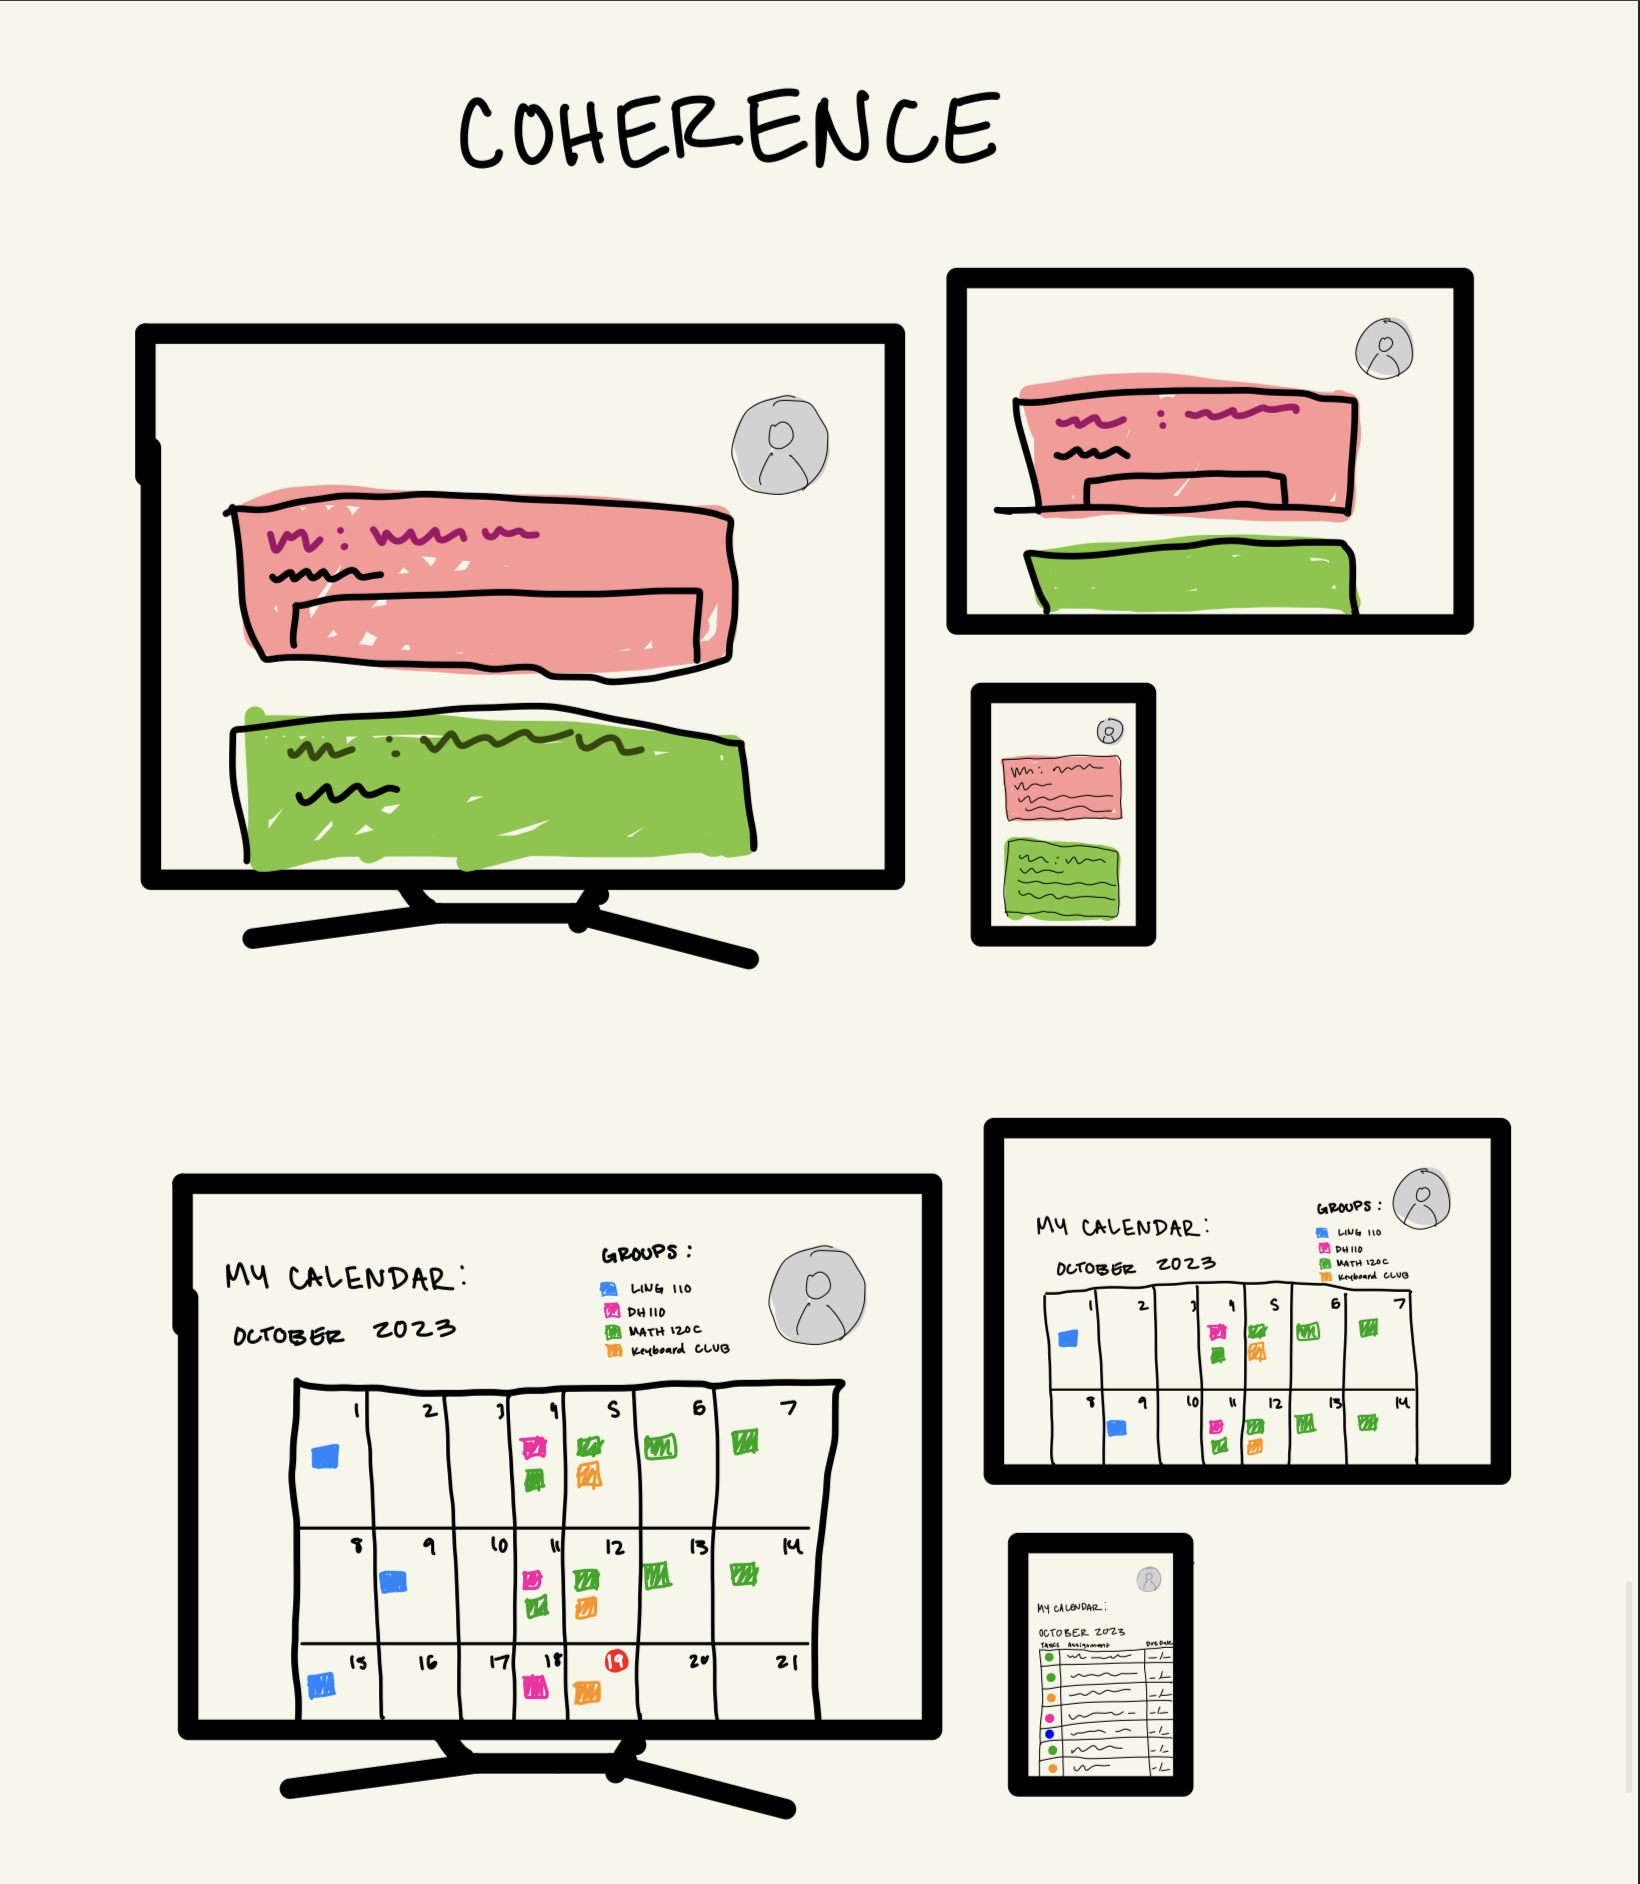 COHERENCE
MY CALENDAR:
OCTOBER 2023
GROUPS:
LING 110
DH 110
MATH 120C
Keyboard CLUB
1 2 3 4 5 6 7
8 9 10 11 12 13 14
15 16 17 18 19 20 21
MY CALENDAR:
OCTOBER 2023
GROUPS:
LING 110
DH 110
MATH 120C
Keyboard CLUB
1 2 3 4 5 6 7
8 9 10 11 12 13 14
MY CALENDAR:
OCTOBER 2023
TASKS Assignment Due Date